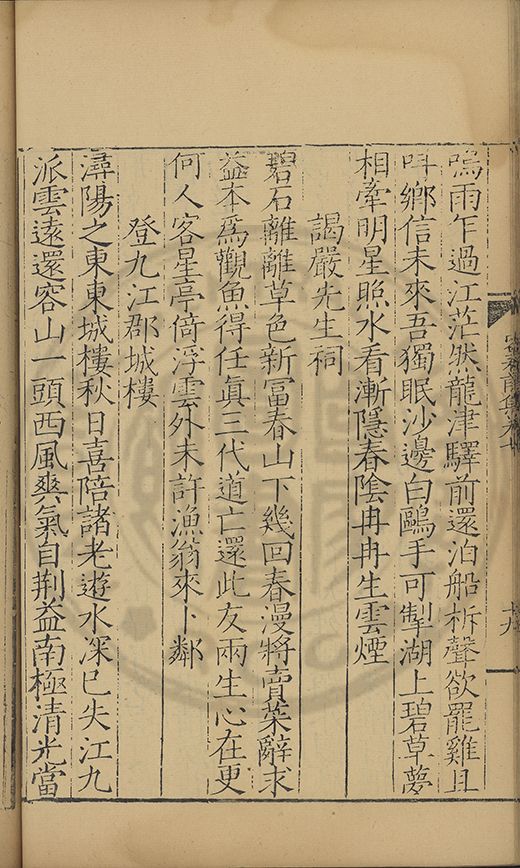 鳴雨乍過江茫然龍津驛前還泊船柝聲欲罷雞且
呌鄉信未來吾獨眠沙邊白鷗手可掣湖上碧草夢
相牽明星照水看漸隱春陰冉冉生雲煙
謁嚴先生祠
碧石離離草色新冨春山下幾回春漫將賣菜辭求
益本爲觀魚得任眞三代道亡還此友兩生心在更
何人客星亭倚浮雲外未許漁翁來卜鄰
登九江郡城樓
潯陽之東東城樓秋日喜陪諸老遊水深已失江九
派雲遠還容山一頭西風爽氣自荆益南極清光當
十九